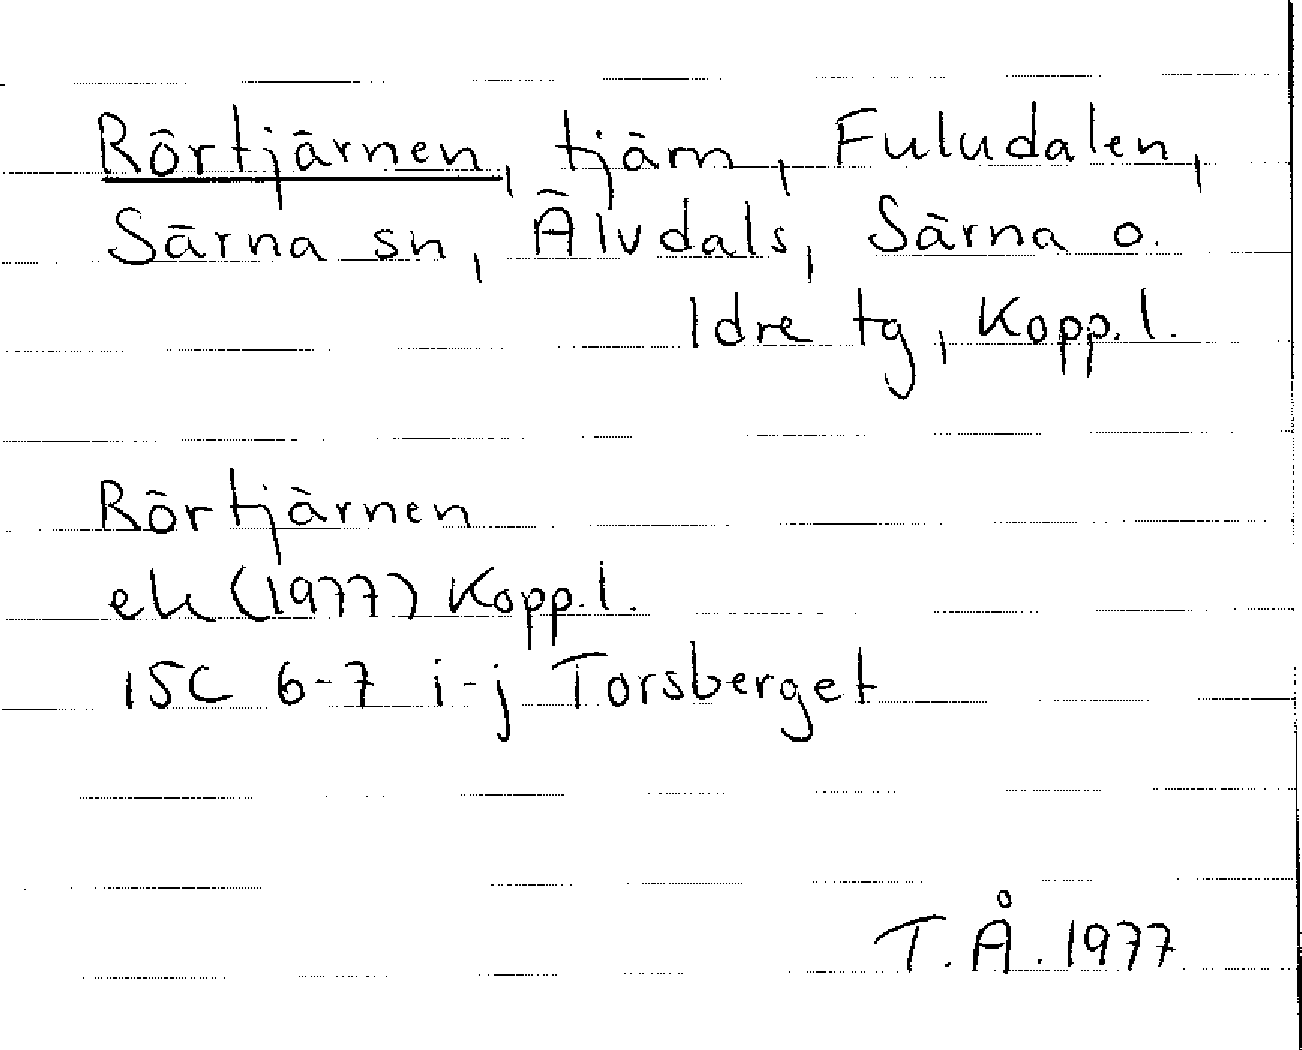 Rörtjärnen, tjärn, Fuludalen,
Särna sn, Älvdals, Särna o.
Idre tg, Kopp. l.
Rörtjärnen
ek (1977) Kopp. l.
15C 6-7 i-j Torsberget
T.Å. 1977